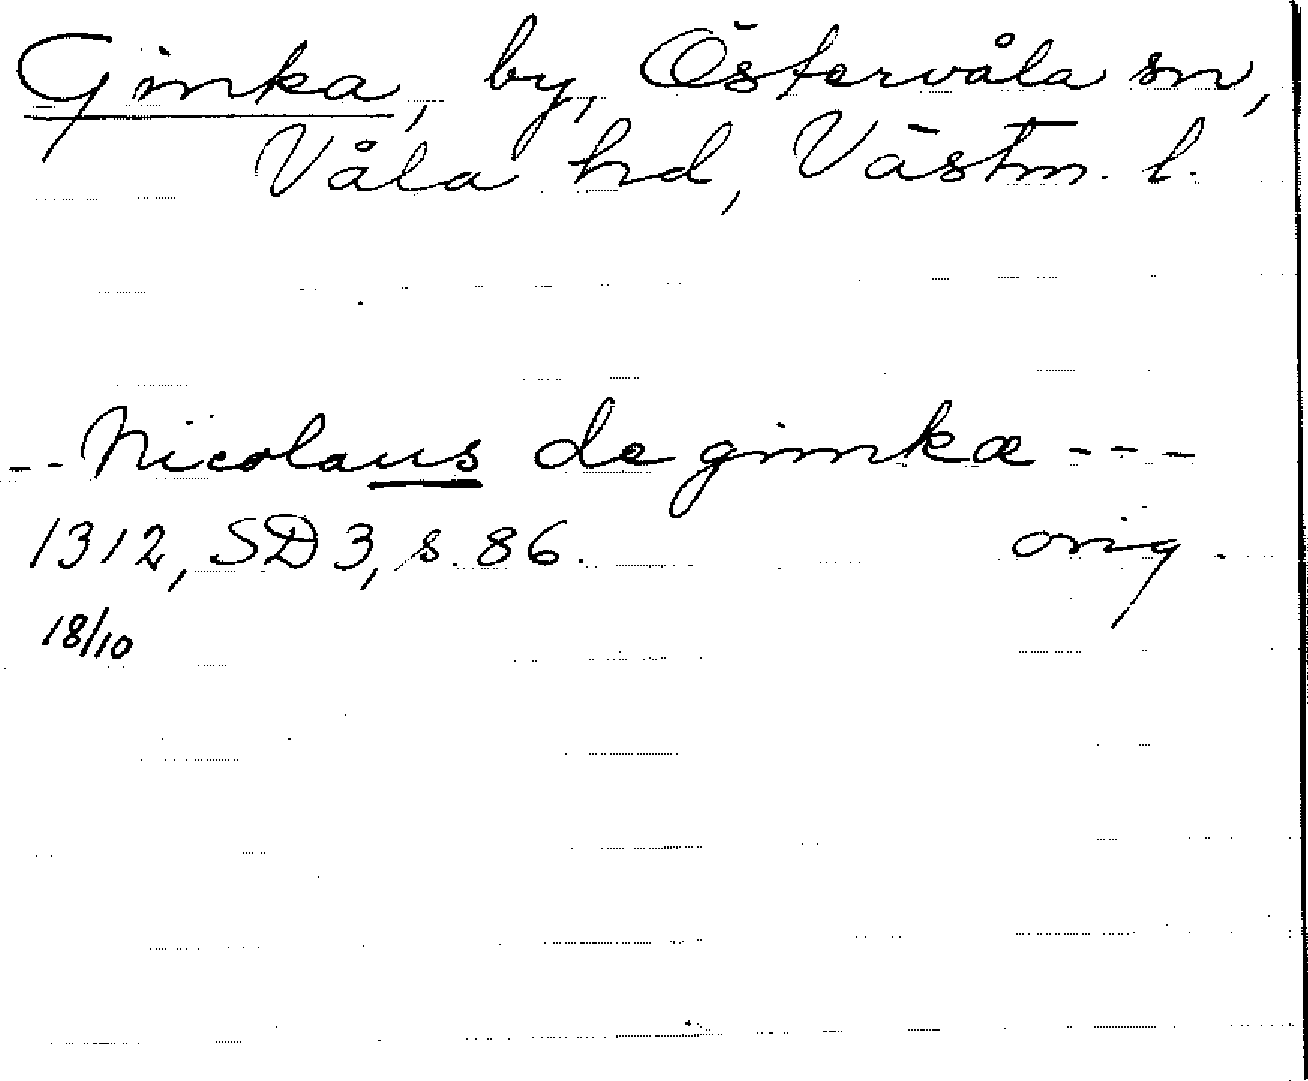 Gimka, by, Östervåla sn,
Våla hd, Västm. l.
-- Nicolaus de gimkæ ---
1312, SD 3, s. 86. orig.
18/10